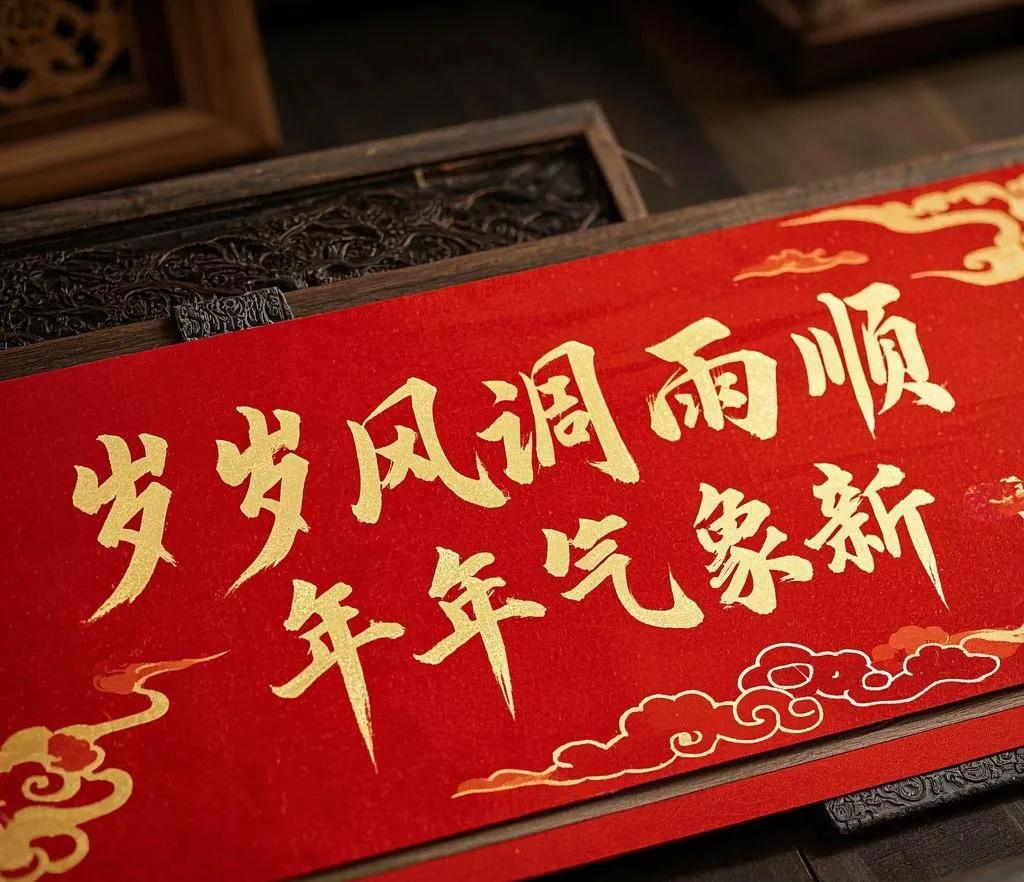 岁岁风调雨顺
年年气象新